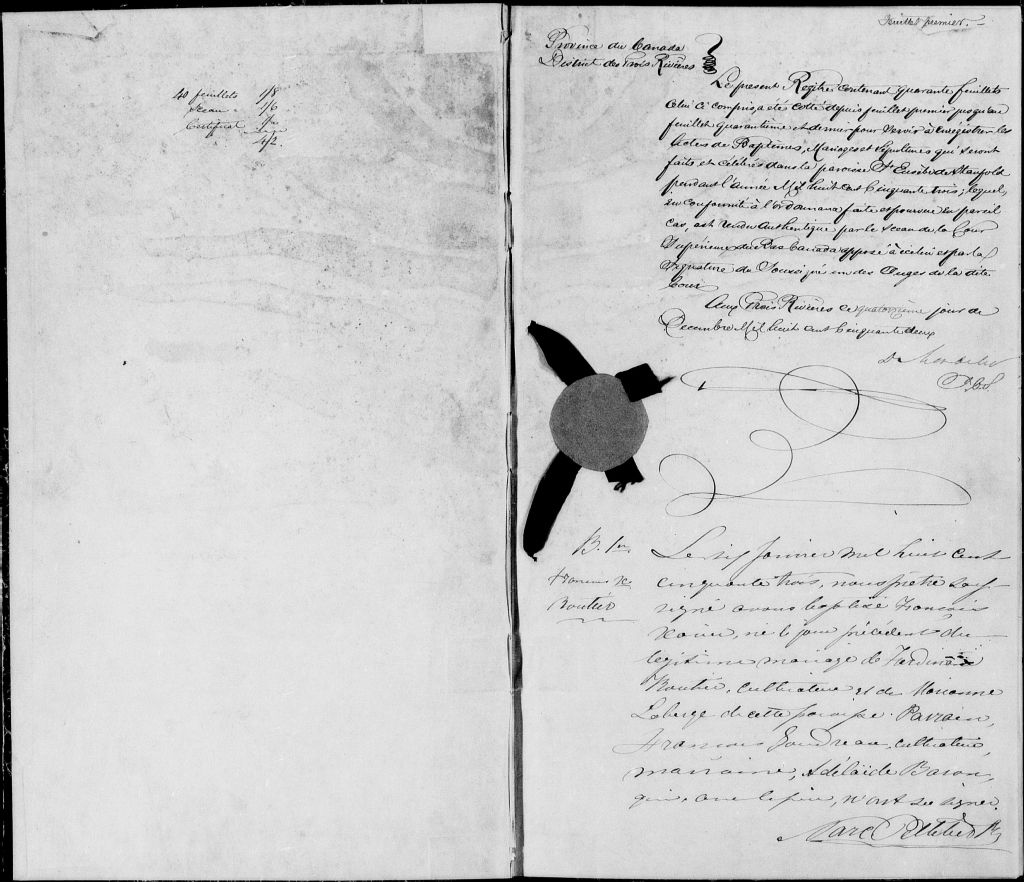 40 feuillets 1/8
Sceau 1/6
Certificat
4/2.
feuillet premier.
Province du Canada
District des Trois Rivières
Le present Regître contenant quarante feuillets
celui ci compris, a été cotté depuis feuillet premier jusqu'au
feuillet quarantième et dernier pour servir à enregistrer les
Actes de Baptêmes, Mariages et Sépultures qui seront
faits et célébrés dans la paroisse St Eusèbe de Stanfold
pendant l'année Mil huit cent Cinquante trois; lequel,
en conformité à l'ordonnance faite et pourvue en pareil
cas, est rendu authentique par le Sceau de la Cour
Supérieure du Bas Canada apposé à icelui et par la
Signature du Soussigné un des Juges de la dite
Cour
Aux Trois Rivières ce quatorzième jour de
Decembre Mil huit cent Cinquante deux
J.C.S.
B. 1er
François Xr
Boutier
Le six janvier mil huit cent
cinquante trois, nous prêtre sous-
signé avons baptisé François
Xavier, né le jour précédent du
légitime mariage de Ferdinand
Boutier, cultivateur et de Marianne
Laberge de cette paroisse. Parrain,
François Goudreau, cultivateur,
marraine, Adélaïde Baron,
qui, avec le père, n'ont su signer.
Marc